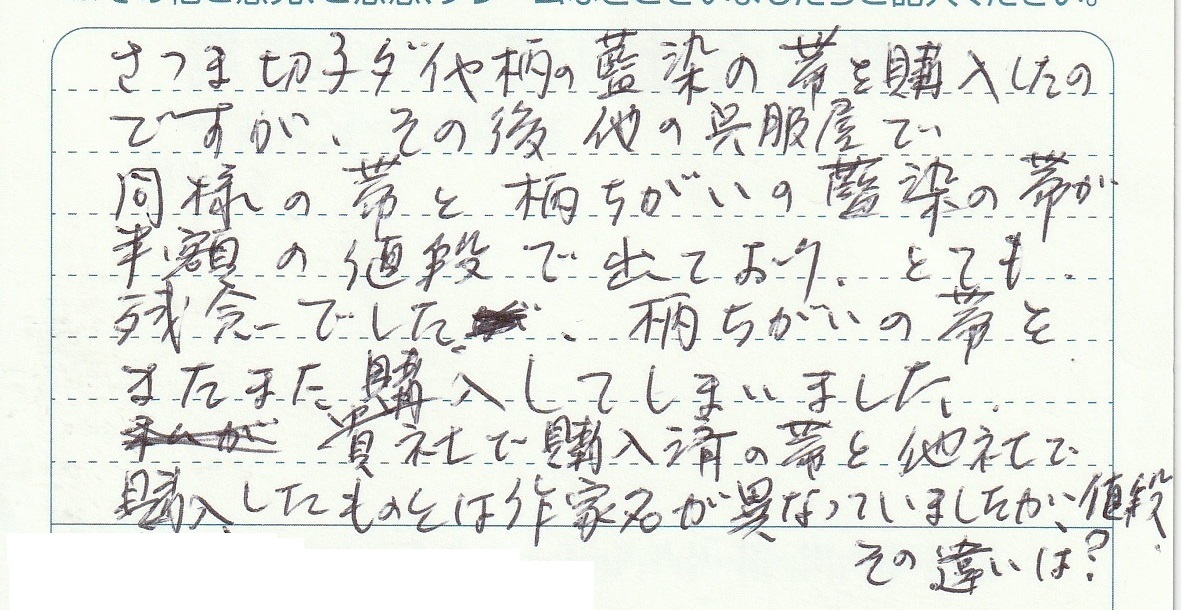 さつま切子ダイヤ柄の藍染の帯を購入したの
ですが、その後他の呉服屋で
同様の帯と柄ちがいの藍染の帯が
半額の値段で出ており、とても
残念でした、柄ちがいの帯を
またまた購入してしまいました。
貴社で購入済の帯と他社で
購入したものとは作家名が異なっていましたが、値段
その違いは？